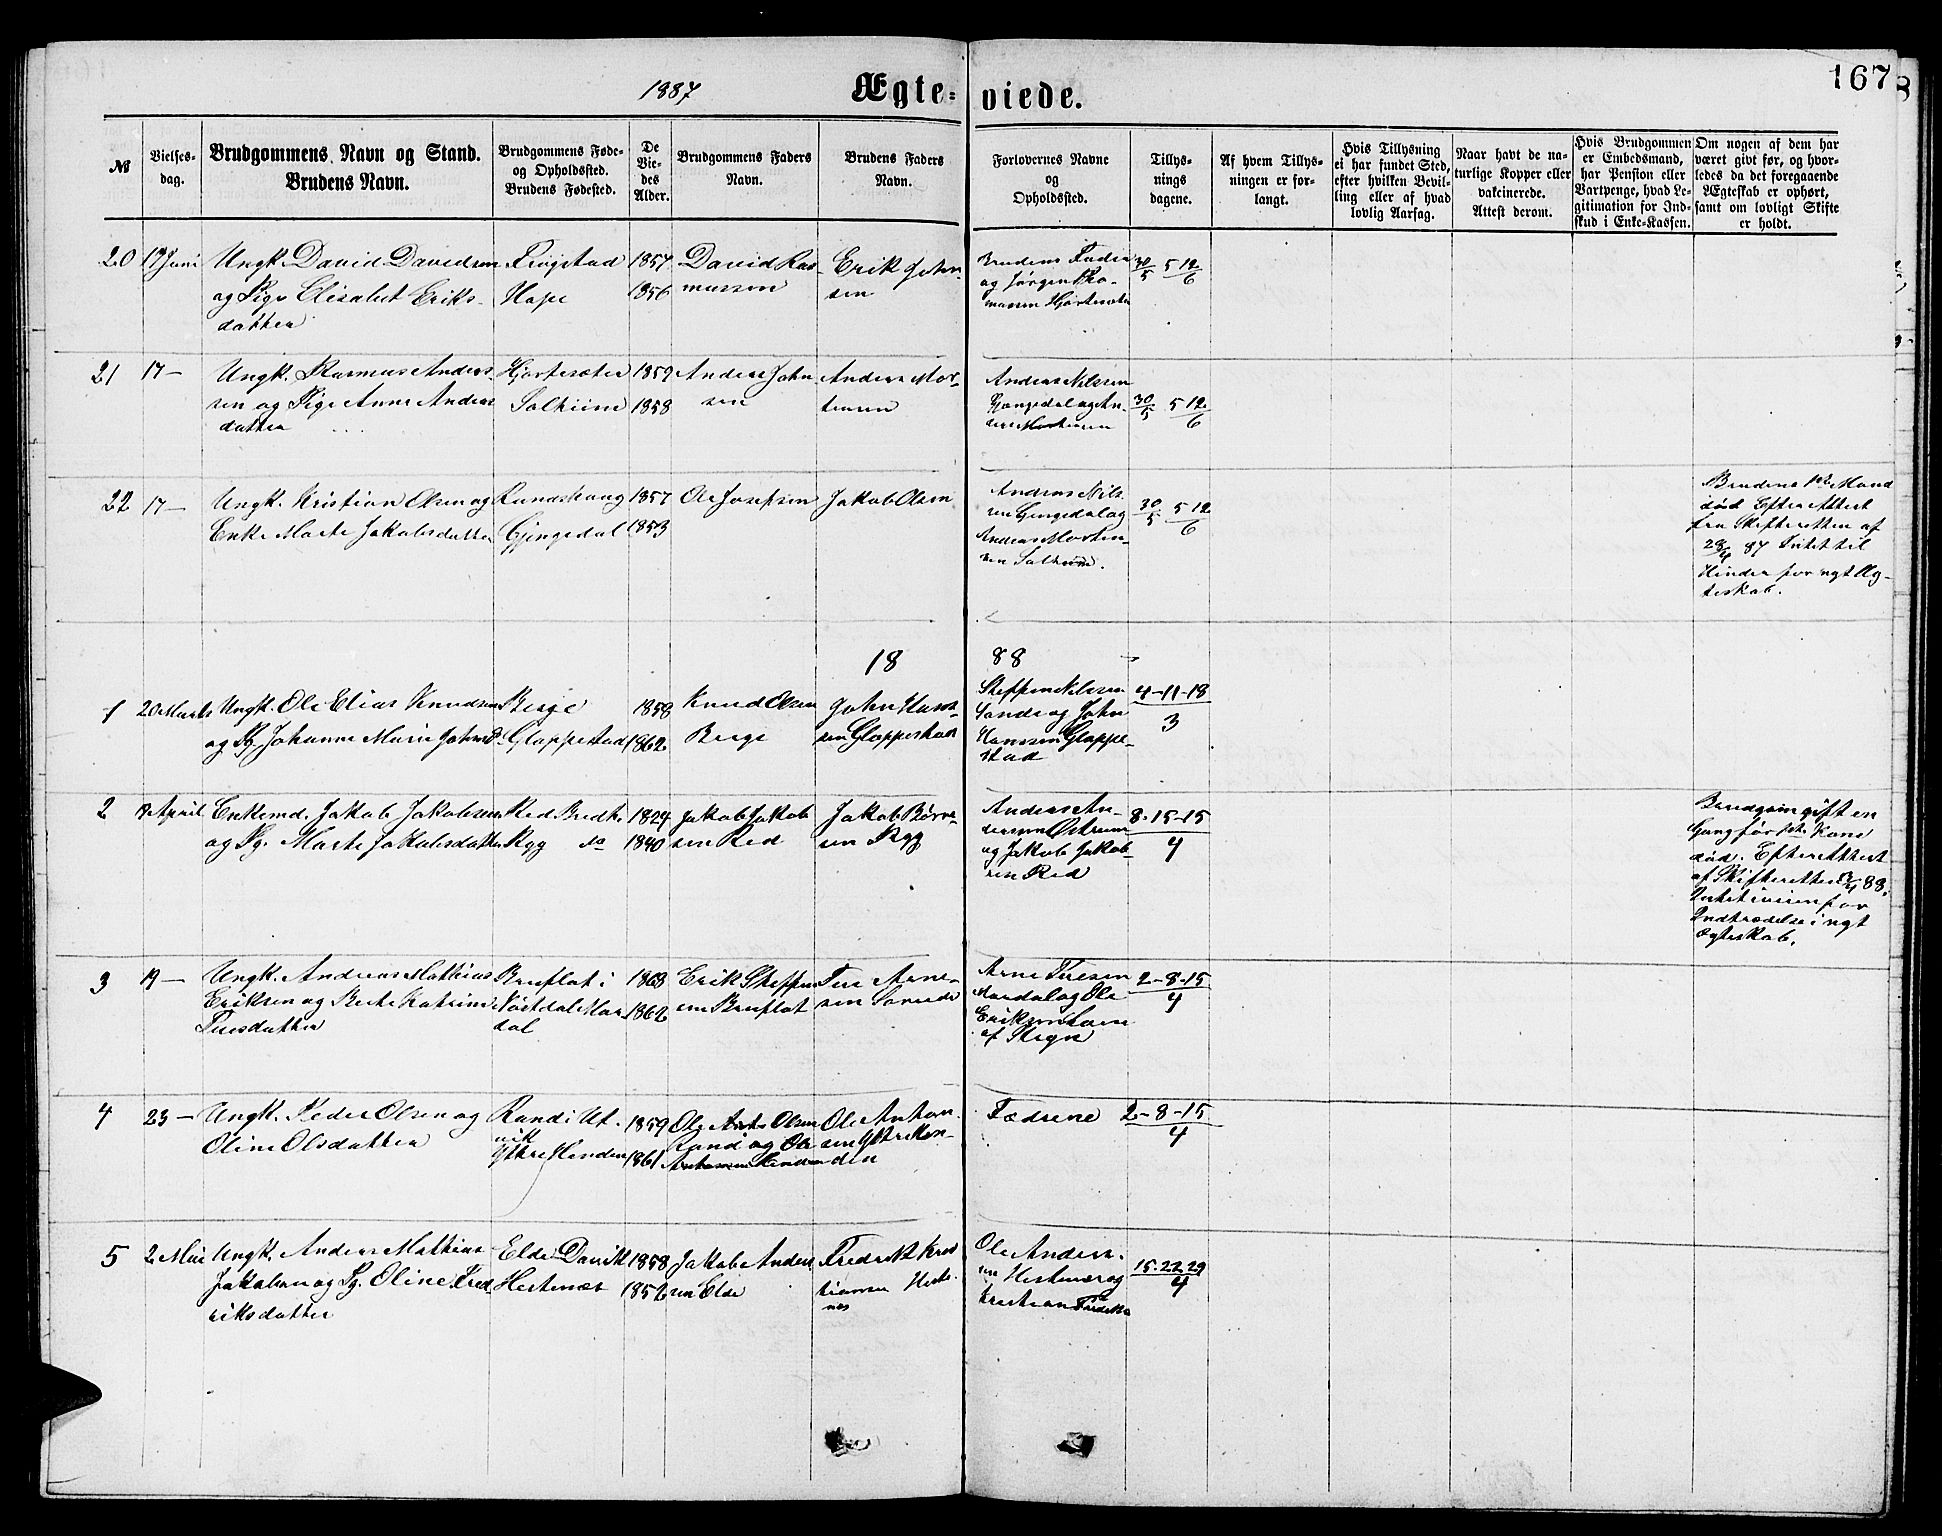 167
1887
Ægte-viede.
№
Vielses-
dag.
Brudgommens Navn og Stand.
Brudens Navn.
Brudgommens Føde-
og Opholdssted.
Brudens Fødested.
De
Vie-
des
Alder.
Brudgommens Faders
Navn.
Brudens Faders
Navn.
Forlovernes Navne
og
Opholdssted.
Tillys-
nings
dagene.
Af hvem Tillys-
ningen er for-
langt.
Hvis Tillysning
ei har fundet Sted,
efter hvilken Bevil-
ling eller af hvad
lovlig Aarsag.
Naar havt de na-
turlige Kopper eller
vakcinerede.
Attest derom.
Hvis Brudgommen
er Embedsmand,
har Pension eller
Vartpenge, hvad Le-
gitimation for Ind-
skud i Enke-Kassen.
Om nogen af dem har
været givt før, og hvor-
ledes da det foregaaende
Ægteskab er ophørt,
samt om lovligt Skifte
er holdt.
20 17 Juni Ungk. David Davidsen
og Pige Elisabet Eriks-
datter
Hope
1857
1856
David Ras-
mussen
Erik
sen
Brudens Fader
og Jørgen Tho-
massen Hjortesæter
30/5 5 12/6
21 17 — Ungk. Rasmus Anders-
sen og Pige Anne Anders
datter
Hjortesæter
Solheim
1859
1858
Anders John
sen
Anders Mor-
tensen
Andreas Nilssen
Gjengedal og An-
ders Mortensen
30/5 5 12/6
22 17 — Ungk. Kristian Olsen og
Enke Marte Jakobsdatter
Gjengedal
1857
1853
Ole Josefsen
Jakob Olsen
Andreas Nils
sen Gengedal og
Andreas Morten-
sen Solheim.
30/5 5 12/6
Brudens 1ste Mand
død Efter Attest
fra Skifteretten af
28/4 87 Intet til
Hinder for nyt Æg-
teskab.
1888
1 20 Marts Ungk. Ole Elias Knudsen
og Pg. Johanne Marie Johnsd.
Berge
Gloppestad
1858
1862
Knud Olsen
Berge
John Hans-
sen Gloppestad
Steffen Nilssen
Sande og John
Hanssen Gloppe-
stad
4-11-18
3
2 April Enkemd. Jakob Jakobsen
og Pg. Marte Jakobsdatter
Red Bredh.
Rygg do
1824
1840
Jakob Jakob
sen Red
Jakob Børre-
sen Rygg
Anders An-
dersen
og Jakob Jakob-
sen Red
8-15-15
4
Brudgom gift en
Gang før 1ste Kone
død. Efter Attest
af Skifteretten 88.
Intet iveien for
Indtrædelse i nyt
Ægteskab.
3 19 — Ungk. Andreas Mathias
Eriksen og Berte Katrine
Tuesdatter
Bruflot i
Nøstdal Mar-
dal
1863
1862
Erik Steffen
sen Bruflot
Tue Arne-
sen
Arne Tuesen
Mardal og Ole
Eriksen
af
2-8-15
4
4 23 — Ungk. Peder Olsen og
Oline Olsdatter
Rand i Ut-
vik
Ytre Henden
1859
1861
Ole Olsen
Rand og Ole
Antonsen Henden
Ole Anton-
sen Ytre Hen-
den
Fædrene
2-8-15
4
5 2 Mai Ungk. Anders Mathias
Jakobsen og Pg. Oline Fred
riksdatter
Elde Davik
Hestenæs
1858
1856
Jakob Anders
sen Elde
Fredrik Kris
tiansen Heste
nes
Ole Anders-
sen Hestenæs og
Kristian
15-22-29
4